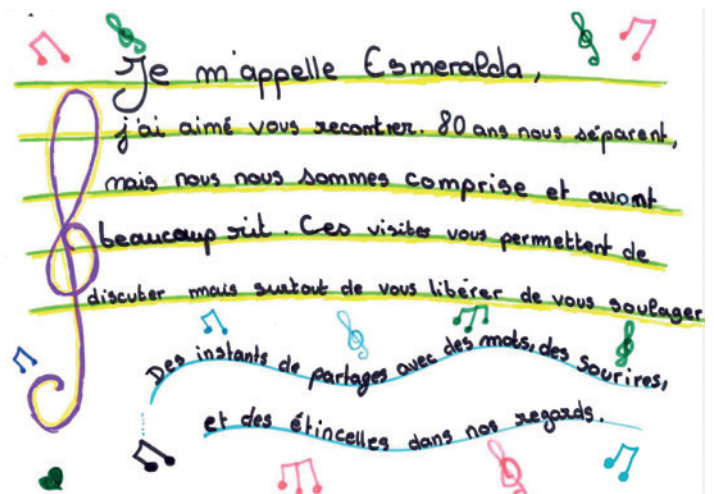 Je m'appelle Esmeralda,
j'ai aimé vous recontrer. 80 ans nous séparent,
mais nous nous sommes comprise et avont
beaucoup rit. Ces visites vous permettent de
discuter mais surtout de vous libérer de vous soulager
Des instants de partages avec des mots, des sourires,
et des étincelles dans nos regards.